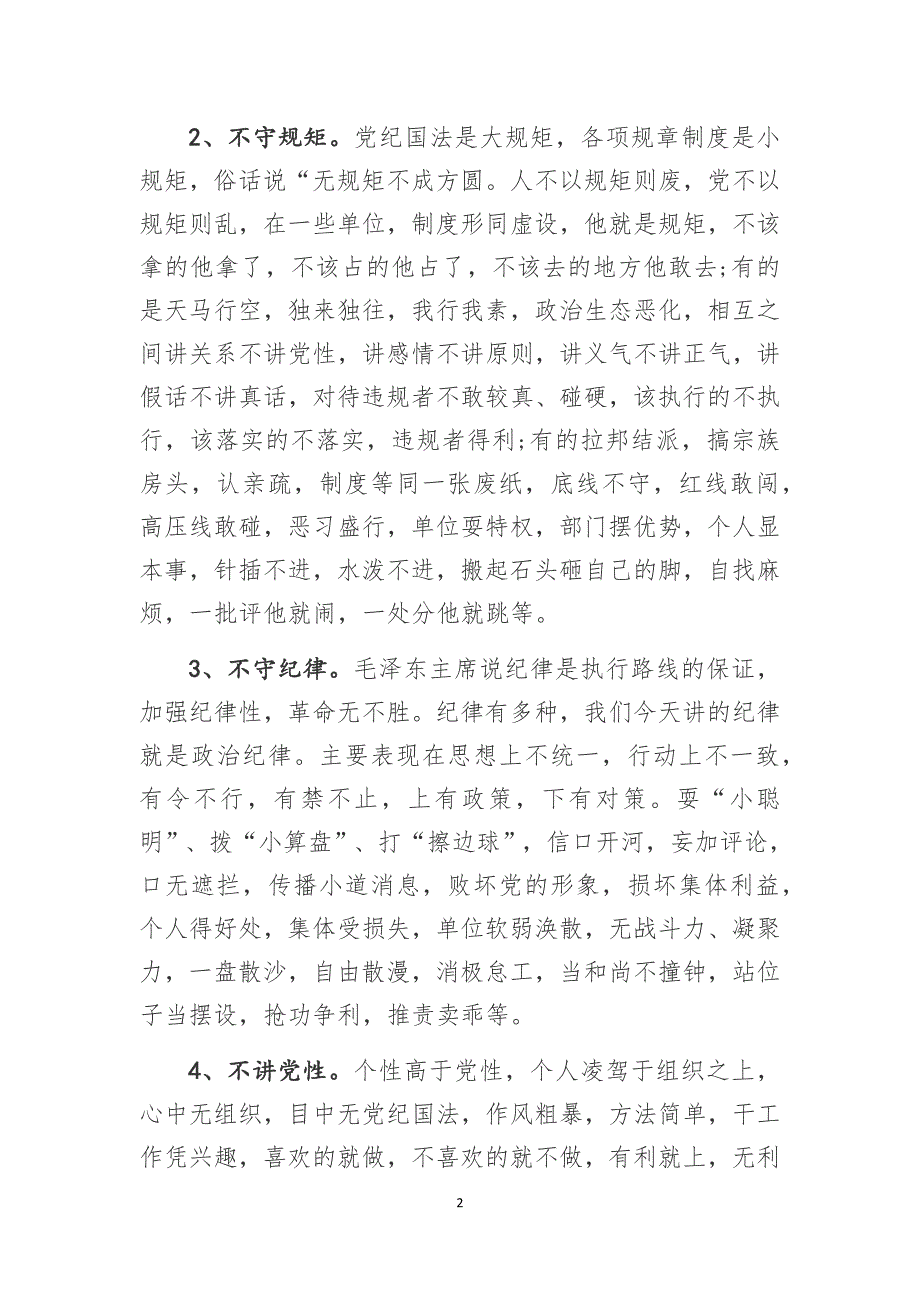 2、不守规矩。党纪国法是大规矩，各项规章制度是小
规矩，俗话说“无规矩不成方圆。人不以规矩则废，党不以
规矩则乱，在一些单位，制度形同虚设，他就是规矩，不该
拿的他拿了，不该占的他占了，不该去的地方他敢去;有的
是天马行空，独来独往，我行我素，政治生态恶化，相互之
间讲关系不讲党性，讲感情不讲原则，讲义气不讲正气，讲
假话不讲真话，对待违规者不敢较真、碰硬，该执行的不执
行，该落实的不落实，违规者得利;有的拉邦结派，搞宗族
房头，认亲疏，制度等同一张废纸，底线不守，红线敢闯，
高压线敢碰，恶习盛行，单位耍特权，部门摆优势，个人显
本事，针插不进，水泼不进，搬起石头砸自己的脚，自找麻
烦，一批评他就闹，一处分他就跳等。
3、不守纪律。毛泽东主席说纪律是执行路线的保证，
加强纪律性，革命无不胜。纪律有多种，我们今天讲的纪律
就是政治纪律。主要表现在思想上不统一，行动上不一致，
有令不行，有禁不止，上有政策，下有对策。耍“小聪
明”、拨“小算盘”、打“擦边球”，信口开河，妄加评论，
口无遮拦，传播小道消息，败坏党的形象，损坏集体利益，
个人得好处，集体受损失，单位软弱涣散，无战斗力、凝聚
力，一盘散沙，自由散漫，消极怠工，当和尚不撞钟，站位
子当摆设，抢功争利，推责卖乖等。
4、不讲党性。个性高于党性，个人凌驾于组织之上，
心中无组织，目中无党纪国法，作风粗暴，方法简单，干工
作凭兴趣，喜欢的就做，不喜欢的就不做，有利就上，无利
2